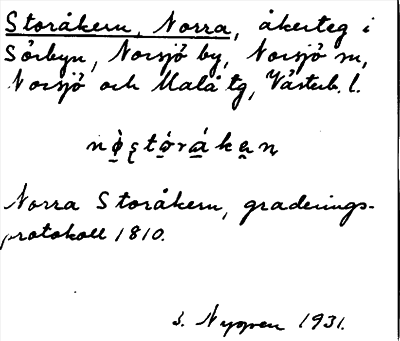 Storåkern, Norra, åkerteg i
Sörbyn, Norsjö by, Norsjö sn,
Norsjö och Malå tg, Västerb. l.
Norra Storåkern, graderings-
protokoll 1810.
s. Nyppen 1931.